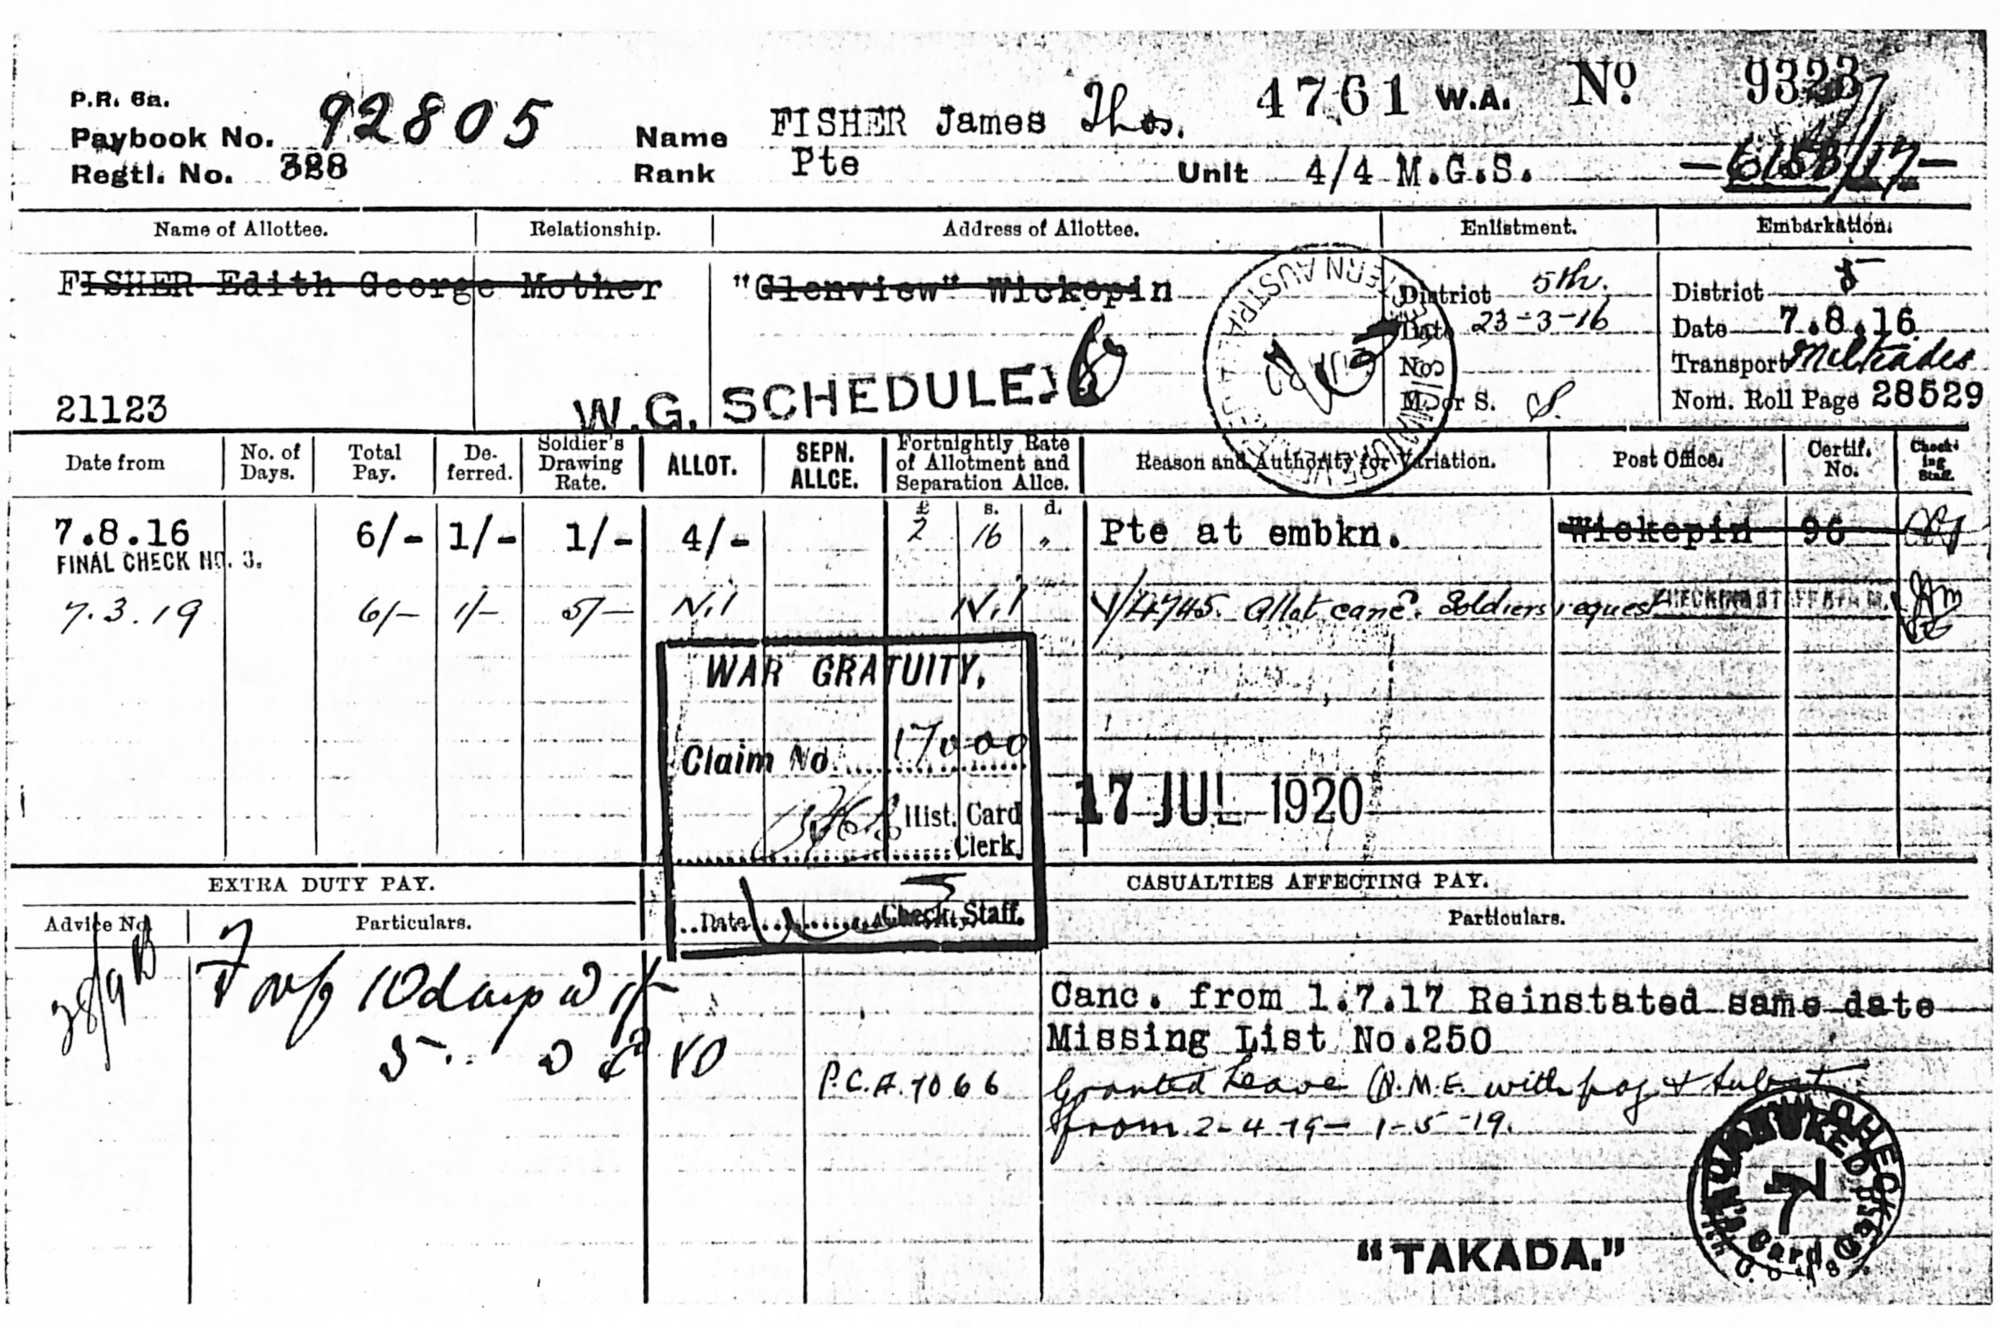 P.R. 6a.
Paybook No. 92805 Name FISHER James Thos. 4761 W.A. No. 9323
Regtl. No. 388 Rank Pte Unit 4/4 M.G.S. /17
Name of Allottee. Relationship. Address of Allottee. Enlistment. Embarkation.
FISHER Edith George Mother "Glenview" Wickepin District 5th. District 5
Date 23-3-16 Date 7.8.16
No. Transport Miltiades
21123 W.G. SCHEDULE 6 M. or S. S. Nom. Roll Page 28529
Date from No. of Days. Total Pay. De-ferred. Soldier's Drawing Rate. ALLOT. SEPN. ALLCE. Fortnightly Rate of Allotment and Separation Allce. Reason and Authority for Variation. Post Office. Certif. No. Check-ing Staff.
£ s. d.
7.8.16 6/- 1/- 1/- 4/- 2 16 " Pte at embkn. Wickepin 96
FINAL CHECK NO. 3.
7.3.19 6/- 1/- 5/- Nil Nil Y/4745. Allot canc. Soldiers request
WAR GRATUITY,
Claim No. 17000
Hist. Card
Clerk.
17 JUL 1920
Date Check. Staff.
EXTRA DUTY PAY. CASUALTIES AFFECTING PAY.
Advice No. Particulars. Particulars.
Forf 10 days
Canc. from 1.7.17 Reinstated same date
Missing List No.250
P.C.A. 7066 Granted Leave N.M.E. with pay & Subst
from 2-4-19 - 1-5-19.
7
"TAKADA."